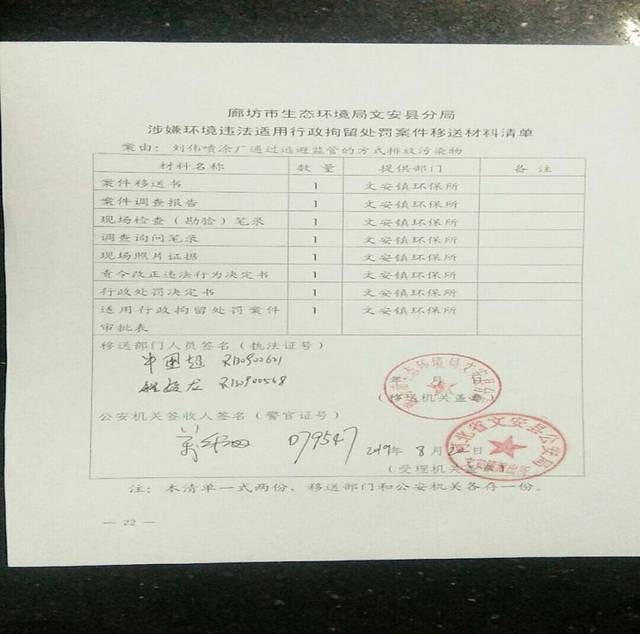 廊坊市生态环境局文安县分局
涉嫌环境违法适用行政拘留处罚案件移送材料清单
案由：刘伟喷涂厂通过逃避监管的方式排放污染物
材料名称 数量 提供部门 备注
案件移送书 1 文安镇环保所
案件调查报告 1 文安镇环保所
现场检查（勘验）笔录 1 文安镇环保所
调查询问笔录 1 文安镇环保所
现场照片证据 1 文安镇环保所
责令改正违法行为决定书 1 文安镇环保所
行政处罚决定书 1 文安镇环保所
适用行政拘留处罚案件
审批表 1 文安镇环保所
移送部门人员签名（执法证号）
年 月 日
（移送机关盖章）
公安机关签收人签名（警官证号）
079547 2019年8月22日
（受理机关盖章）
河北省文安县公安局
注：本清单一式两份，移送部门和公安机关各存一份。
— 22 —